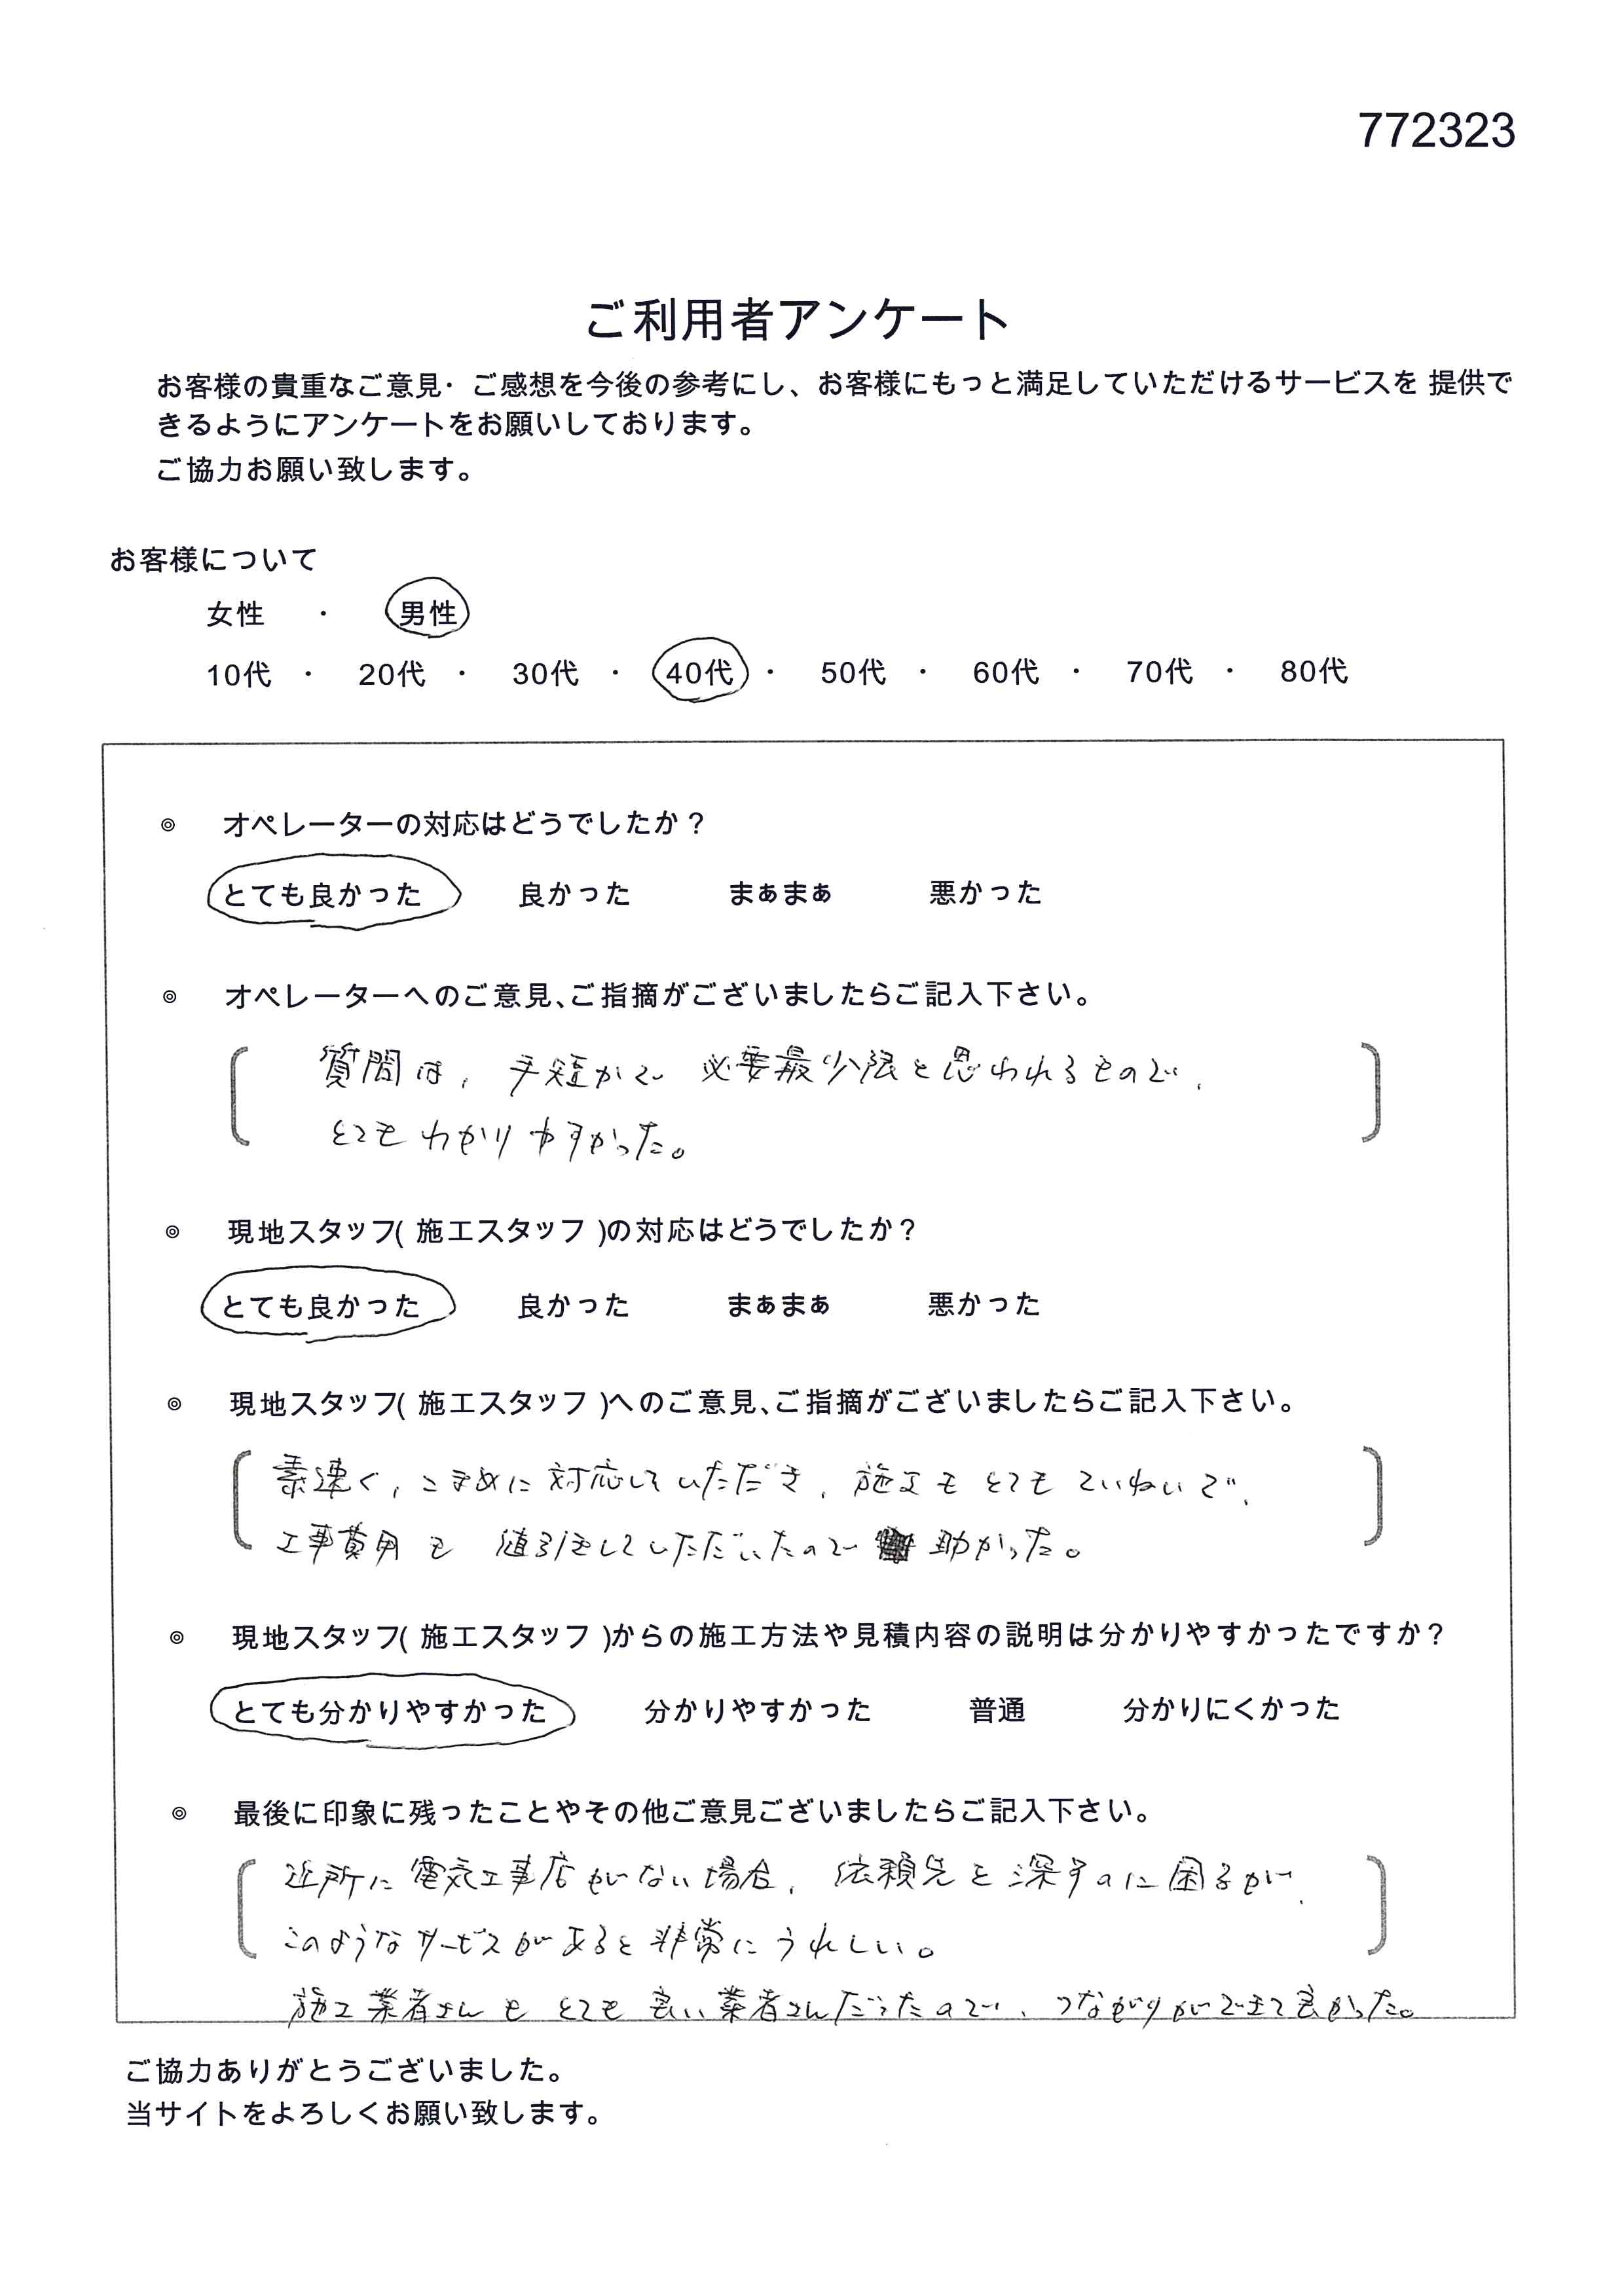 772323
ご利用者アンケート
お客様の貴重なご意見・ご感想を今後の参考にし、お客様にもっと満足していただけるサービスを 提供で
きるようにアンケートをお願いしております。
ご協力お願い致します。
お客様について
女性 ・ 男性
10代 ・ 20代 ・ 30代 ・ 40代 ・ 50代 ・ 60代 ・ 70代 ・ 80代
◎ オペレーターの対応はどうでしたか？
とても良かった 良かった まぁまぁ 悪かった
◎ オペレーターへのご意見、ご指摘がございましたらご記入下さい。
質問は、手短かで 必要最少限と思われるもので、
とても わかりやすかった。
◎ 現地スタッフ( 施工スタッフ )の対応はどうでしたか？
とても良かった 良かった まぁまぁ 悪かった
◎ 現地スタッフ( 施工スタッフ )へのご意見、ご指摘がございましたらご記入下さい。
素速く、こまめに対応していただき、施工も とても ていねいで、
工事費用も 値引きしていただいたので 助かった。
◎ 現地スタッフ( 施工スタッフ )からの施工方法や見積内容の説明は分かりやすかったですか？
とても分かりやすかった 分かりやすかった 普通 分かりにくかった
◎ 最後に印象に残ったことやその他ご意見ございましたらご記入下さい。
近所に電気工事店がない場合、依頼先を深すのに困るが、
このようなサービスがあると非常にうれしい。
施工業者さんも とても良い業者さんだったので、つながりができて良かった。
ご協力ありがとうございました。
当サイトをよろしくお願い致します。